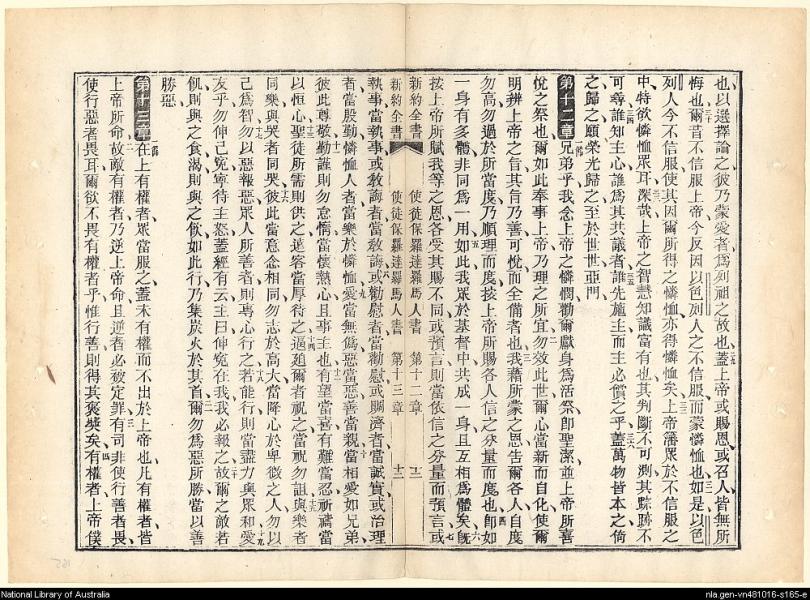 也以選擇論之彼乃蒙愛者爲列祖之故也蓋上帝或賜恩或召人皆無所
悔也爾昔不信服上帝今反因以色列人之不信服而蒙憐恤也如是以色
列人今不信服使其因爾所得之憐恤亦得憐恤矣上帝籓眾於不信服之
中特欲憐恤眾耳深哉上帝之智慧知識富有也其判斷不可測其踪跡不
可尋誰知主心誰爲其共議者誰先施主而主必償之乎蓋萬物皆本之倚
之歸之願榮光歸之至於世世亞門
第十二章 兄弟乎我念上帝之憐憫勸爾獻身爲活祭卽聖潔並上帝所喜
悅之祭也爾如此奉事上帝乃理之所宜勿效此世爾心當新而自化使爾
明辨上帝之旨其旨乃善可悅而全備者也我藉所蒙之恩告爾各人自度
勿高勿過於所當度乃順理而度按上帝所賜各人信之分量而度也卽如
一身有多體非同爲一用如此我眾於基督中共成一身且互相爲體矣旣
按上帝所賦我等之恩各受其賜不同或預言則當依信之分量而預言或
新約全書 使徒保羅達羅馬人書 第十二章
新約全書 使徒保羅達羅馬人書 第十三章
執事當執事或教誨者當教誨或勸慰者當勸慰或賙濟者當誠實或治理
者當殷勤憐恤人者當樂於憐恤愛當無僞惡當惡善當親當相愛如兄弟
彼此尊敬勤謹則勿怠惰當懷熱心且事主也有望當喜有難當忍祈禱當
以恒心聖徒所需則供之遠客當厚待之逼廹爾者祝之當祝勿詛與樂者
同樂與哭者同哭彼此當意念相同勿志於高大當降心於卑微之人勿以
己爲智勿以惡報惡眾人所善者則專心行之若能行則當盡力與眾和愛
友乎勿伸己寃寧待主怒蓋經有云主曰伸寃在我我必報之故爾之敵若
飢則與之食渴則與之飲如此行乃集炭火於其首爾勿爲惡所勝當以善
勝惡
第十三章 在上有權者眾當服之蓋未有權而不出於上帝也凡有權者皆
上帝所命故敵有權者乃逆上帝命且逆者必被定罪有司非使行善者畏
使行惡者畏耳爾欲不畏有權者乎惟行善則得其褒奬矣有權者上帝僕
National Library of Australia
nla.gen-vn481016-s165-e